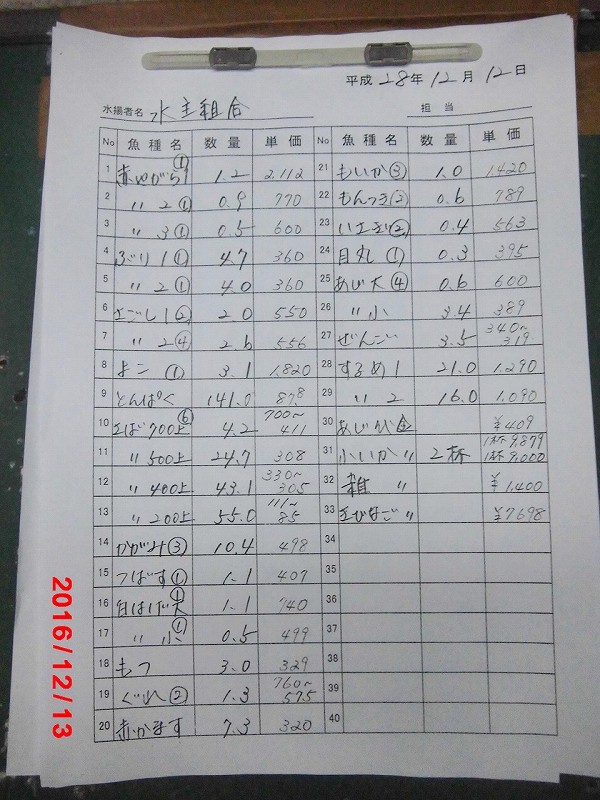 平成 28年 12月 12日
水揚者名 水主組合 担当
No 魚種名 数量 単価 No 魚種名 数量 単価
1 赤やがら1① 1.2 2.112
2 〃 2① 0.9 770
3 〃 3① 0.5 600
4 ぶり1① 4.7 360
5 〃 2① 4.0 360
6 さごし1② 2.0 550
7 〃 2④ 2.6 556
8 よこ① 3.1 1.820
9 とんぱく 141.0 87.8
10 さば700上⑥ 4.2 700~411
11 〃 500上 24.7 308
12 〃 400上 43.1 330~305
13 〃 200上 55.0 111~85
14 かがみ③ 10.4 498
15 つばす① 1.1 407
16 白はげ大① 1.1 740
17 〃 小① 0.5 499
18 もつ 3.0 329
19 ぐれ② 1.3 760~575
20 赤かます 7.3 320
21 もいか③ 1.0 1.420
22 もんつき② 0.6 789
23 いさぎ② 0.4 563
24 目丸① 0.3 395
25 あじ大④ 0.6 600
26 〃 小 3.4 389
27 ぜんご 3.5 340~319
28 するめ1 21.0 1.290
29 〃 2 16.0 1.090
30 あじ代金 ¥409
31 小いか〃 2杯 1杯9.879 1杯9.000
32 雑〃 ¥1.400
33 〃 ¥7698
34
35
36
37
38
39
40
2016/12/13